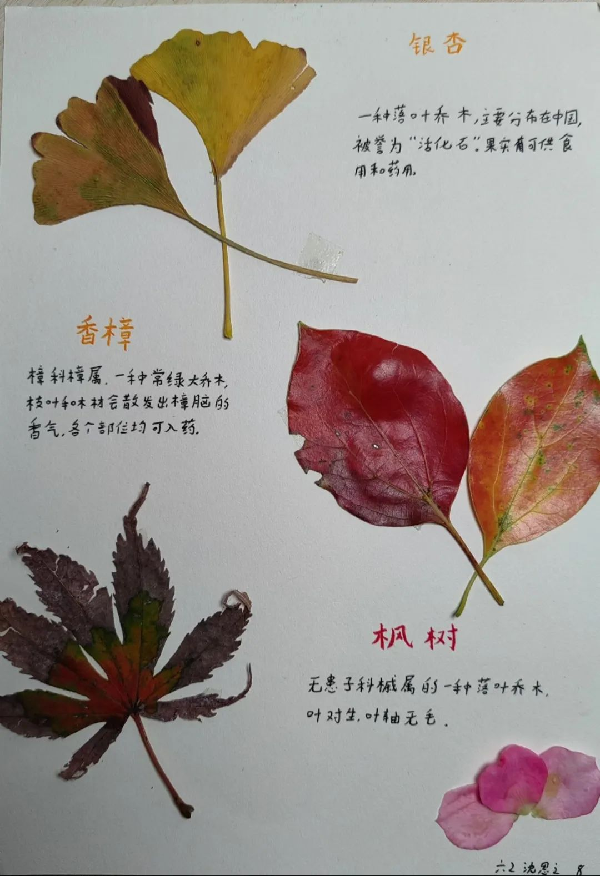 银杏
一种落叶乔木,主要分布在中国,
被誉为“活化石”。果实有可供食
用和药用。
香樟
樟科樟属,一种常绿大乔木,
枝叶和木材会散发出樟脑的
香气,各个部位均可入药。
枫树
无患子科槭属的一种落叶乔木,
叶对生,叶轴无毛。
六2 沈思之 8